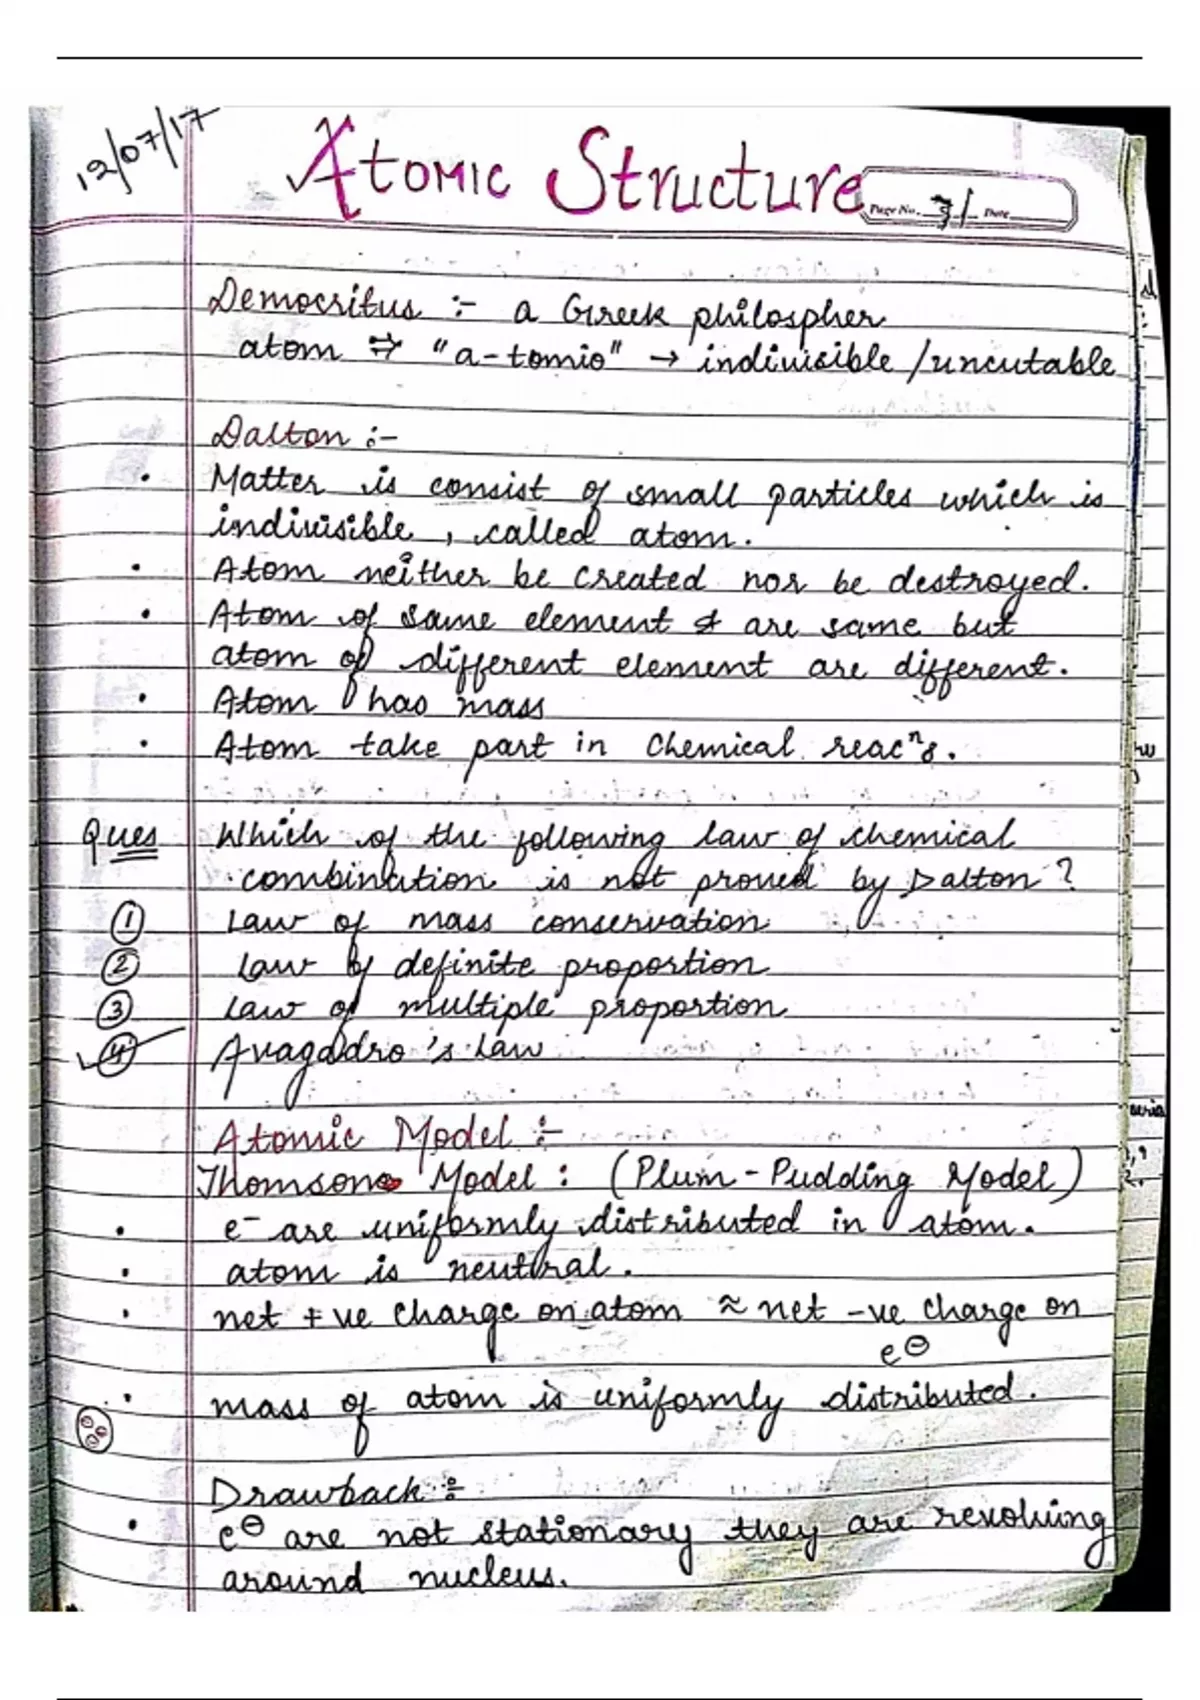 12/07/17
Atomic Structure
Page No. 31 Date
Democritus :- a Greek philospher
atom ⇒ "a-tomio" → indivisible /uncutable
Dalton :-
• Matter is consist of small particles which is
indivisible, called atom.
• Atom neither be created nor be destroyed.
• Atom of same element are same but
atom of different element are different.
• Atom has mass
• Atom take part in Chemical reacⁿs.
Ques Which of the following law of chemical
combination is not proved by Dalton ?
① Law of mass conservation
② Law of definite proportion
③ Law of multiple proportion
④ Avagadro's Law
Atomic Model :-
Thomson Model : (Plum-Pudding Model)
• e⁻ are uniformly distributed in atom.
• atom is neutral.
• net +ve charge on atom ≈ net -ve charge on
e⊖
• mass of atom is uniformly distributed.
Drawback :-
• e⊖ are not stationary they are revolving
around nucleus.